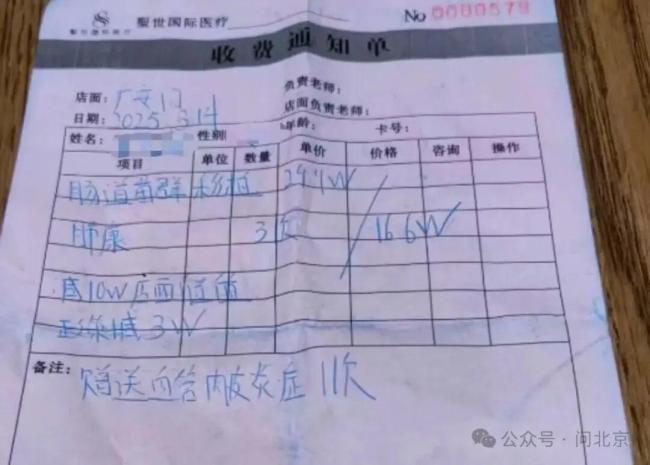 聚世国际医疗 No 0000579
收费通知单
店面：广安门 负责老师：
日期：2025.3.14 店面负责老师：
姓名： 性别 年龄： 卡号：
项目 单位 数量 单价 价格 咨询 操作
肠道菌群移植 29.4W
肺康 3次 16.6W
减10W店面
减3W
备注：赠送血管内皮炎症 11次
公众号·问北京